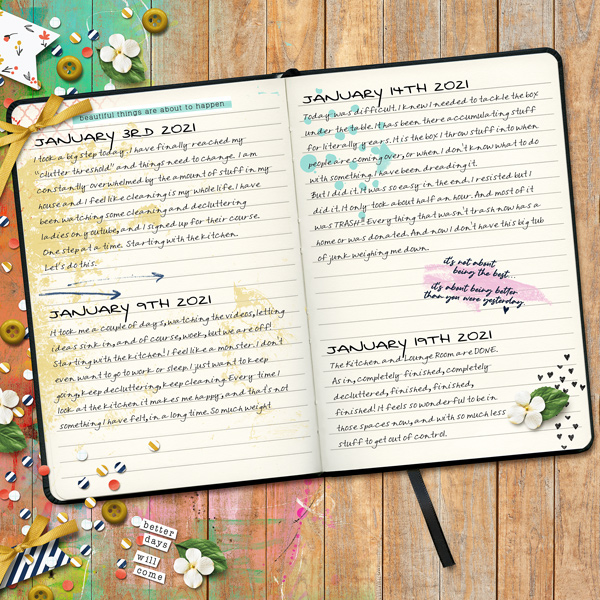 beautiful things are about to happen
JANUARY 3RD 2021
I took a big step today. I have finally reached my
"clutter threshold" and things need to change. I am
constantly overwhelmed by the amount of stuff in my
house and I feel like cleaning is my whole life. I have
been watching some cleaning and decluttering
ladies on youtube, and I signed up for their course.
One step at a time. Starting with the kitchen.
Let's do this.
JANUARY 9TH 2021
It took me a couple of days, watching the videos, letting
ideas sink in, and of course, work, but we are off!
Starting with the kitchen! I feel like a monster. I don't
even want to go to work or sleep. I just want to keep
going, keep decluttering, keep cleaning. Every time I
look at the kitchen it makes me happy, and that's not
something I have felt, in a long time. So much weight
JANUARY 14TH 2021
Today was difficult. I knew I needed to tackle the box
under the table. It has been there accumulating stuff
for literally years. It is the box I throw stuff into when
people are coming over, or when I don't know what to do
with something. I have been dreading it.
But I did it. It was so easy in the end. I resisted but I
did it. It only took about half an hour. And most of it
was TRASH! Everything that wasn't trash now has a
home or was donated. And now I don't have this big tub
of junk weighing me down.
it's not about
being the best...
it's about being better
than you were yesterday.
JANUARY 19TH 2021
The Kitchen and Lounge Room are DONE.
As in, completely finished, completely
decluttered, finished, finished,
finished! It feels so wonderful to be in
those spaces now, and with so much less
stuff to get out of control.
better
days
will
come